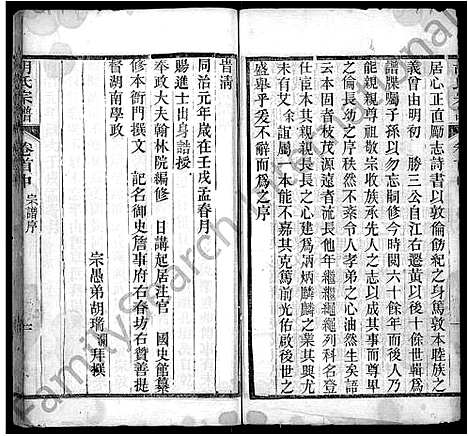 居心正直勵志詩書以敦倫飭紀之身篤敦本睦族之
義曾由明初 勝三公自江右遷黃以後十餘世輯爲
譜牒囑子孫以勿忘制修今時閱六十餘年而後人乃
能親親尊祖敬宗收族承先人之志以成其事而尊卑
之倫長幼之序秩然不紊令人孝弟之心油然生矣語
云本固者枝茂源遠者流長他年繼繼繩繩列科名登
仕宦本其親親長長之心建爲炳炳麟麟之業則有厚
望焉 艾餘誼屬一本能不嘉其克篤前光佑啟後人
盛舉乎爰不辭而爲之序
皆清
同治元年歲在壬戌孟春月
賜進士出身誥授
奉政大夫翰林院編修 日講起居注官 國史館纂
修本衙門撰文 記名御史詹事府右春坊右贊善提
督湖南學政
宗愚弟胡瑞瀾拜撰
胡氏宗譜
卷首中 宗譜序
一
FamilySearch International